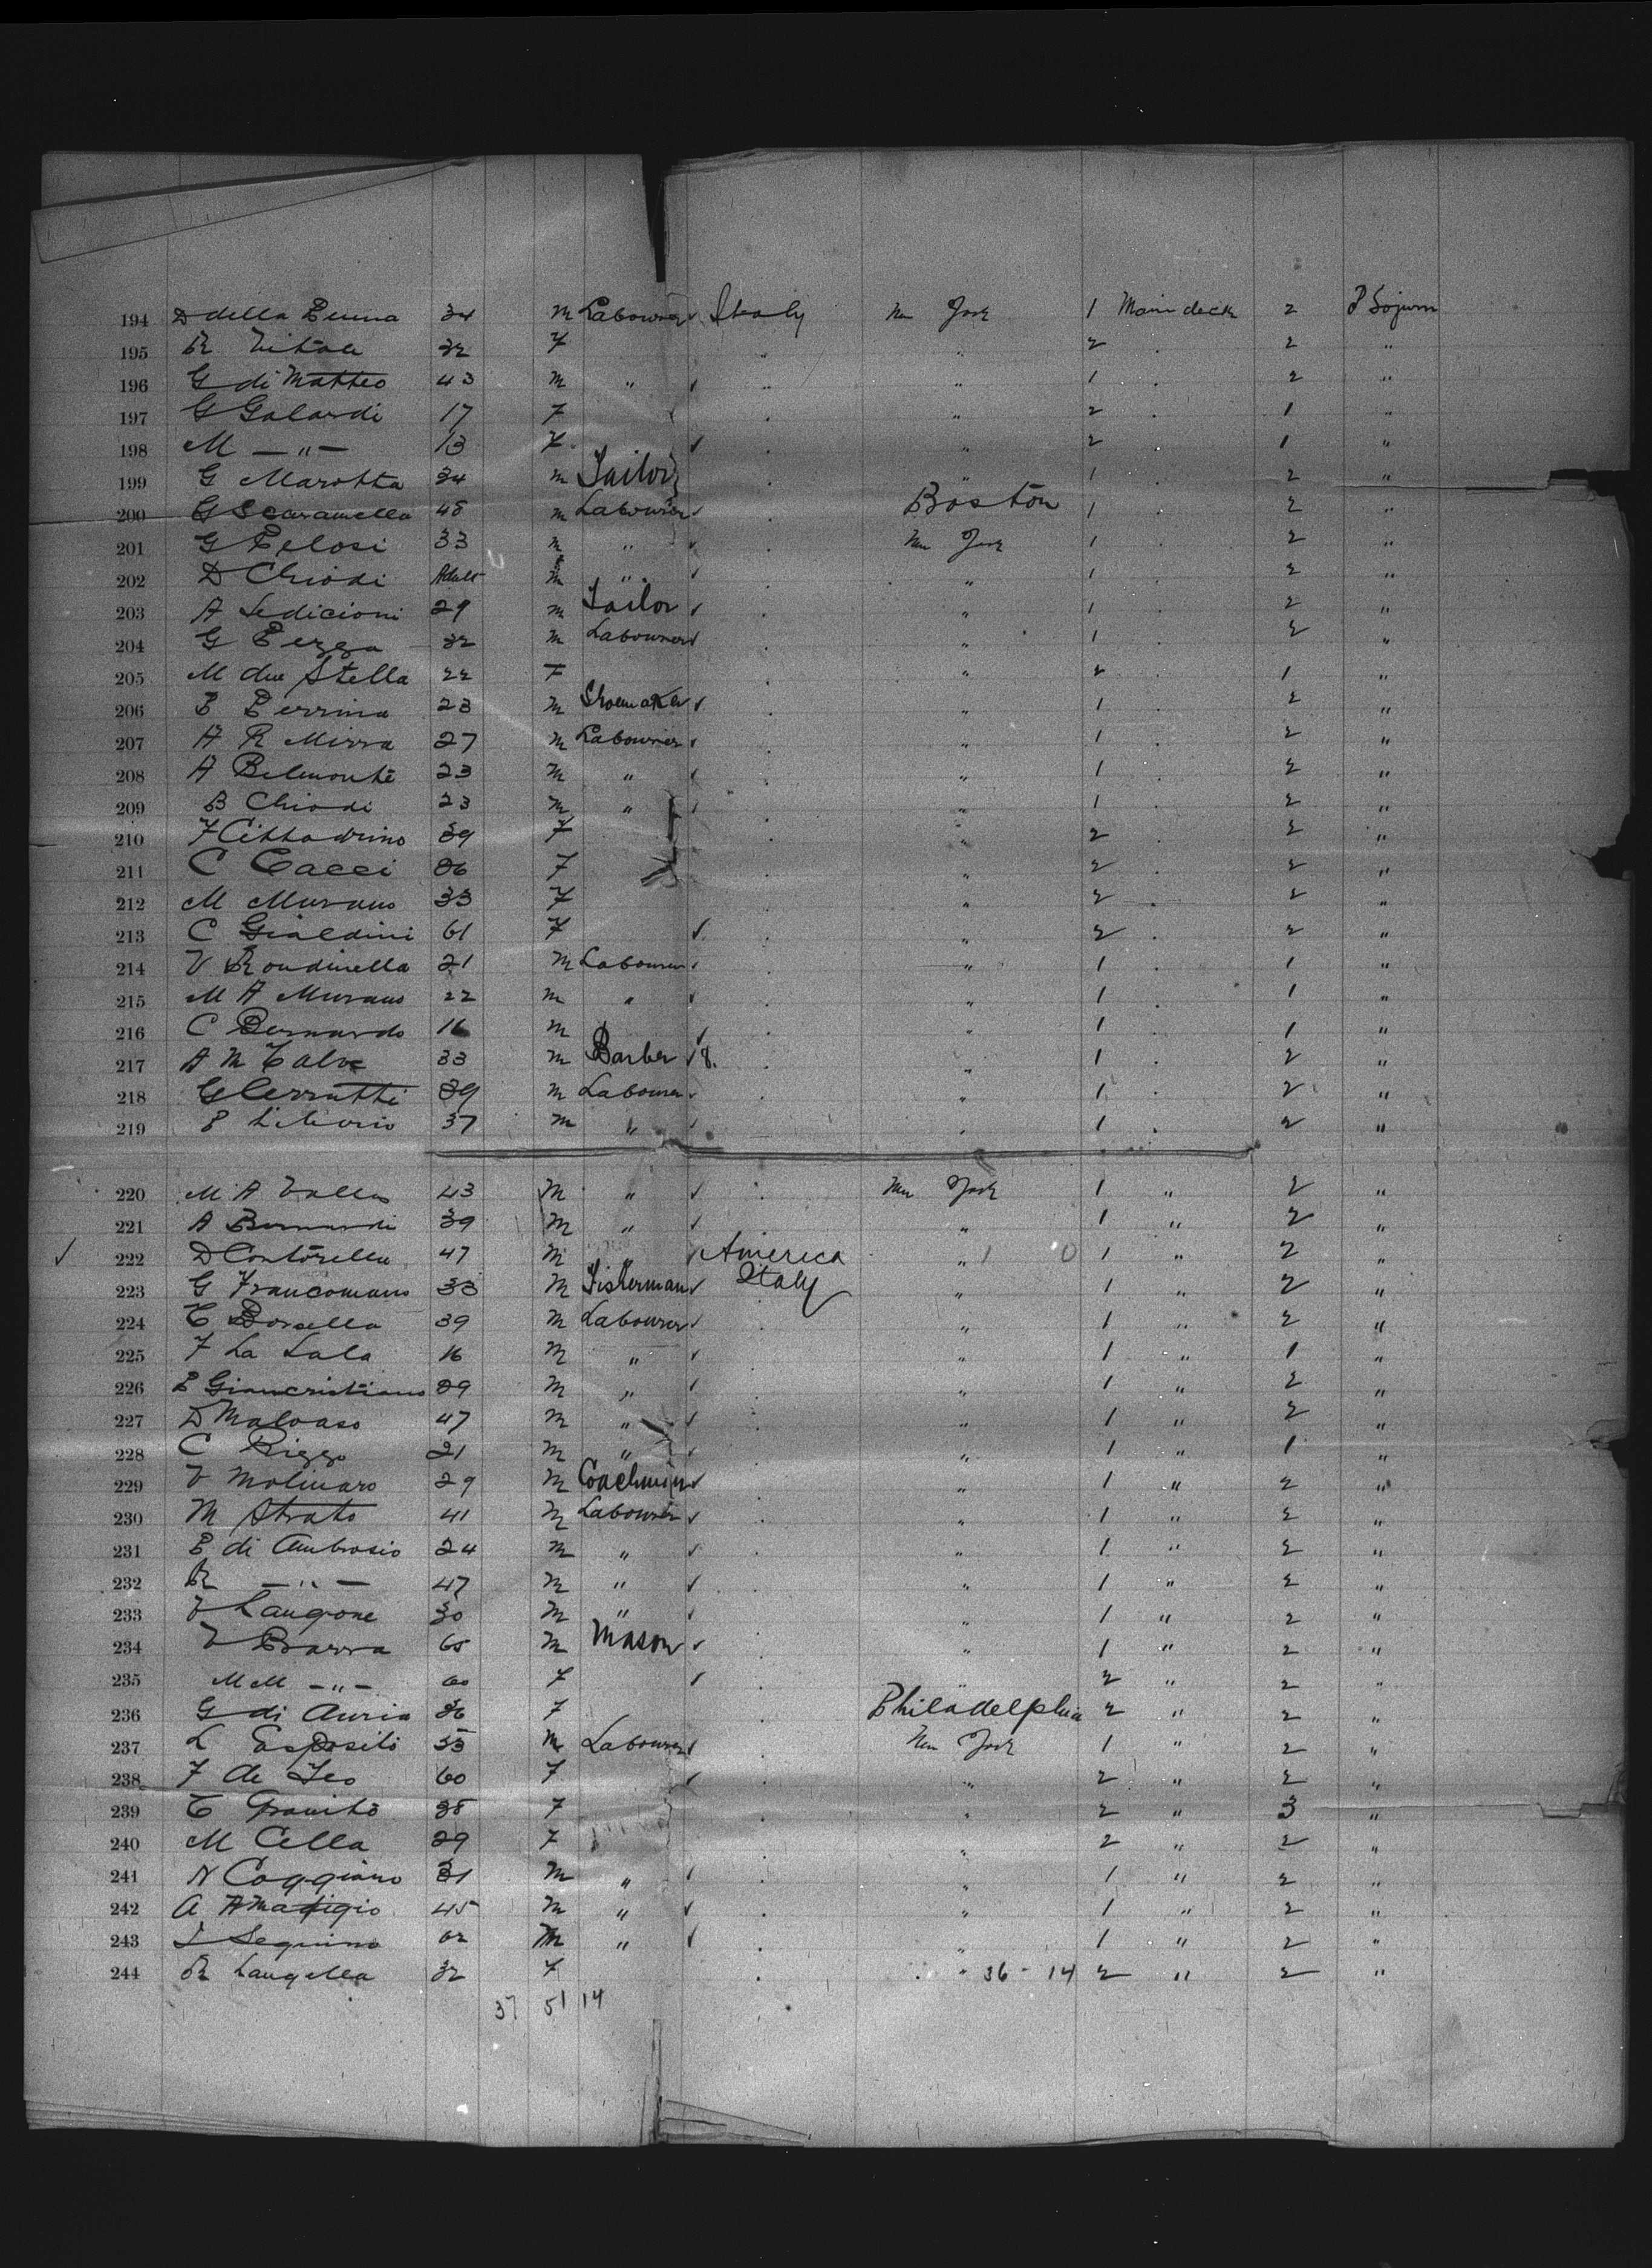 194 D della Penna 34 M Labourer Italy New York 1 Main deck 2 P Sojurn
195 R Vitale 32 F " " 2 2 "
196 G di Matteo 43 M " " " 1 2 "
197 G Galardi 17 F " 2 1 "
198 M — " — 13 F " 2 1 "
199 G Marotta 34 M Tailor " 1 2 "
200 G Scaramella 48 M Labourer Boston 1 2 "
201 G Pelosi 33 M " New York 1 2 "
202 D Chiodi Adult M " " 1 2 "
203 A Sedicioni 29 M Tailor " 1 2 "
204 G Pezza 32 M Labourer " 1 2 "
205 M due Stella 22 F " 2 1 "
206 P Perrina 23 M Shoemaker " 1 2 "
207 A R Mirra 27 M Labourer " 1 2 "
208 A Belmonte 23 M " " 1 2 "
209 B Chiodi 23 M " " 1 2 "
210 F Cittadino 39 F " 2 2 "
211 C 36 F " 2 2 "
212 M Murano 33 F " 2 2 "
213 C Gialdini 61 F " 2 2 "
214 V Rondinella 21 M Labourer " 1 1 "
215 M A Murano 22 M " " 1 1 "
216 C Bernardo 16 M " 1 1 "
217 A M 33 M Barber " 1 2 "
218 G Cerrutti 39 M Labourer " 1 2 "
219 P Liborio 37 M " " 1 2 "
220 M A 43 M " New York 1 " 2 "
221 A Bernardi 39 M " " 1 " 2 "
222 D Contorella 47 M " America " 1 0 1 " 2 "
223 G Francomano 33 M Fisherman Italy " 1 " 2 "
224 C Borsella 39 M Labourer " 1 " 2 "
225 F La Sala 16 M " " 1 " 1 "
226 P Giancristiano 39 M " " 1 " 2 "
227 D Malvaso 47 M " " 1 " 2 "
228 C Rizzo 21 M " " 1 " 1 "
229 V Molinaro 29 M Coachman " 1 " 2 "
230 M Strato 41 M Labourer " 1 " 2 "
231 P di Ambrosio 24 M " " 1 " 2 "
232 R — " — 47 M " " 1 " 2 "
233 V Langone 30 M " " 1 " 2 "
234 V Barra 65 M Mason " 1 " 2 "
235 M M — " — 60 F 2 " 2 "
236 G di Auria 36 F Philadelphia 2 " 2 "
237 L Esposito 33 M Labourer New York 1 " 2 "
238 F de Leo 60 F " 2 " 2 "
239 C Granito 38 F " 2 " 3 "
240 M Cella 29 F " 2 " 2 "
241 N Caggiano 31 M " " 1 " 2 "
242 A 45 M " " 1 " 2 "
243 Seguino 62 M " " 1 " 2 "
244 R Langella 32 F " 36 - 14 2 " 2 "
37 51 14